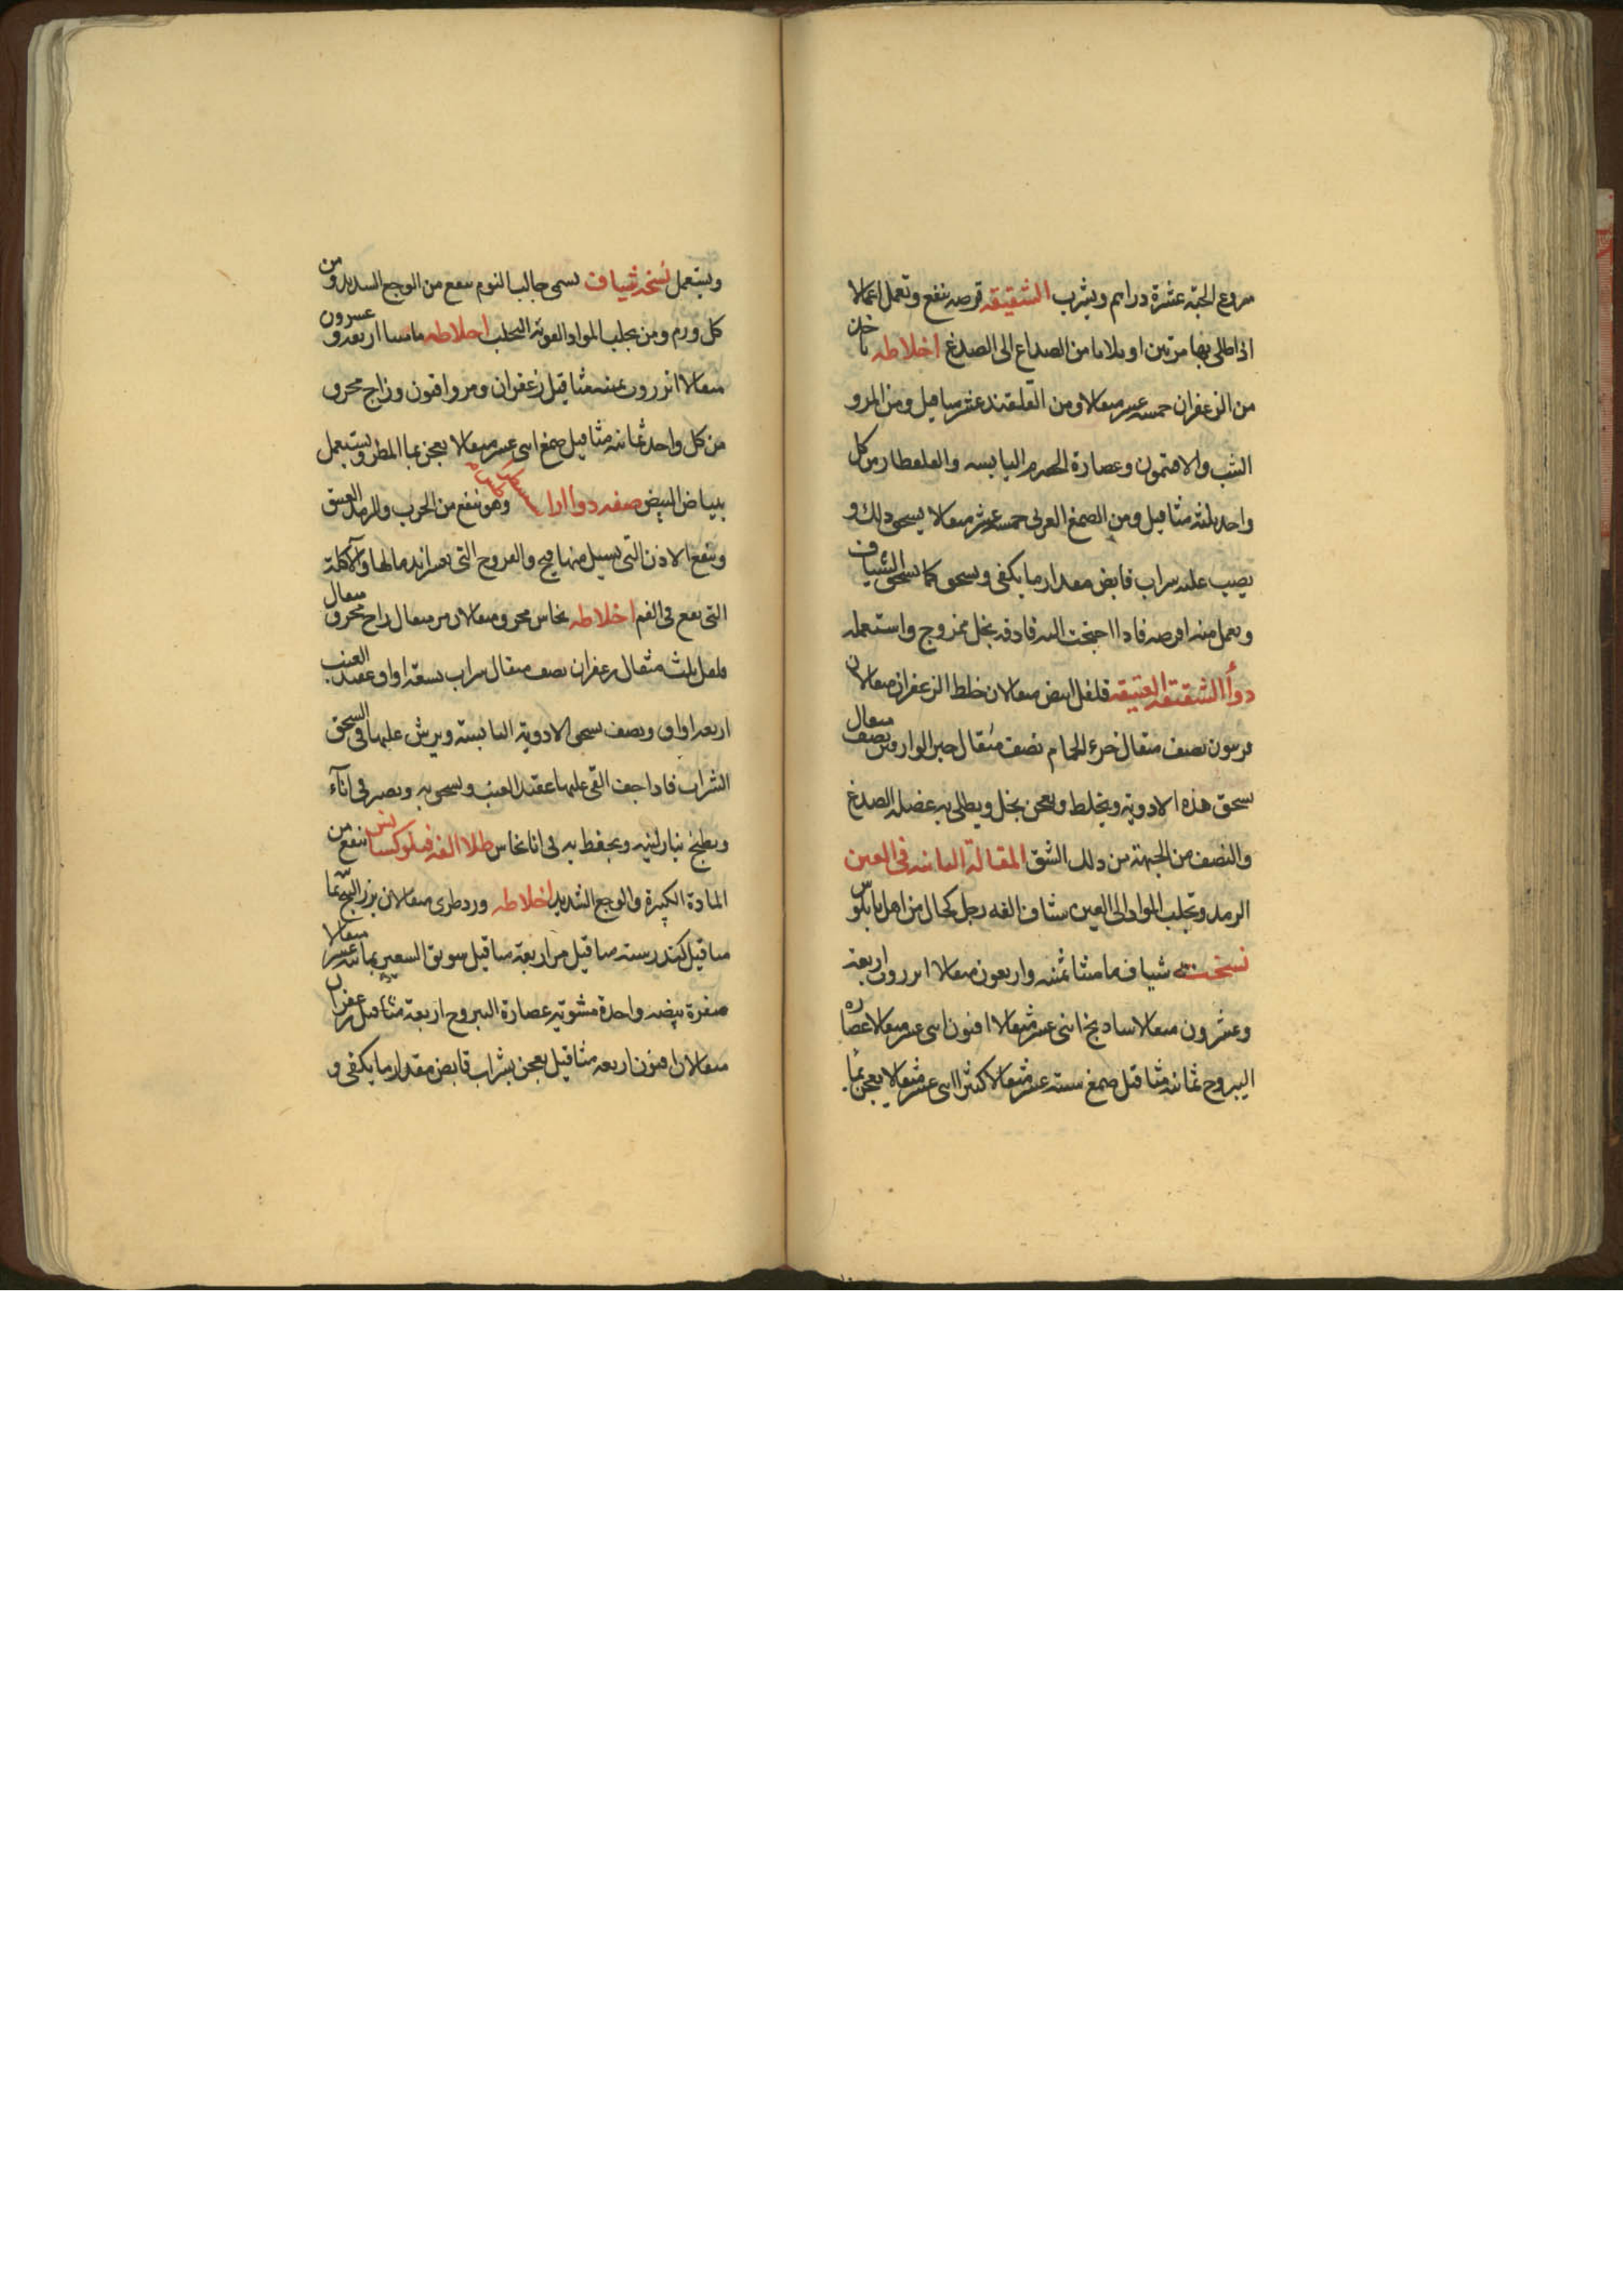 منزوع الحبة عشرة دراهم ويشرب الشقيقه قرصه ينفع وتعمل اعمالا
اذا طلى بها مرتين او ثلاثا من الصداع الى الصدغ اخلاطه تاخذ
من الزعفران خمسه عشر مثقالا ومن القلقند عشر مثاقيل ومن المر و
الشب والافتمون وعصارة الحصرم اليابسه والقلقطار من كل
واحد ثلثه مثاقيل ومن الصمغ العربى خمسه عشر مثقالا يسحق ذلك و
يصب عليه شراب قابض مقدار ما يكفى ويسحق كما يسحق الشياف
ويعمل منه اقرصه فاذا احتجت اليه فادفه بخل ممزوج واستعمله
دوأ الشقيقه العتيقه فلفل ابيض مثقالان خلط الزعفران مثقالان
فربيون نصف مثقال خرء الحمام نصف مثقال حبر الوارقين نصف مثقال
يسحق هذه الادوية ويخلط ويعجن بخل ويطلى به عضله الصدغ
والنصف من الجبهة من ذلك الشق المقالة الثانيه فى العين
الرمد وتجلب المواد الى العين شياف الفه رجل كحال من اهل بابلوس
نسخته شياف مامثا ثمنيه واربعون مثقالا انزروت اربعة
وعشرون مثقالا ساذنج اثنى عشر مثقالا افيون اثنى عشر مثقالا عصاره
اليبروح ثمانيه مثاقيل صمغ سته عشر مثقالا كثيرا اثنى عشر مثقالا يعجن بما
ويستعمل نسخه شياف يسمى جالب النوم ينفع من الوجع الشديد ومن
كل ورم ومن تجلب المواد القوية التحلب اخلاطه مامثيا اربعه وعشرون
مثقالا انزروت ثمنيه مثاقيل زعفران ومر وافيون وزاج محرق
من كل واحد ثمانيه مثاقيل صمغ اثنى عشر مثقالا يعجن بماء المطر ويستعمل
ببياض البيض صفه دوأ وهو ينفع من الجرب والرمد العتيق
وينفع الاذن التى يسيل منها قيح والقروح التى يعسر اندمالها والآكلة
التى تقع فى الفم اخلاطه نحاس محرق مثقالان مر مثقال زاج محرق مثقال
فلفل ثلث مثقال زعفران نصف مثقال شراب تسعة اواق عقيد العنب
اربعه اواق ونصف يسحق الادوية اليابسة ويرش عليها فى السحق
الشراب فاذا جف القى عليها عقيد العنب ويسحق به ويصير فى انآء
ويطبخ بنار لينه ويحفظ به فى انا نحاس طلا الفه ينفع من
المادة الكثيرة والوجع الشديد اخلاطه ورد طرى مثقالان بزر البنج ثما
مثاقيل كندر سته مثاقيل مر اربعة مثاقيل سويق الشعير ثمانيه عشر مثقالا
صفرة بيضه واحدة مشوية عصارة اليبروح اربعة مثاقيل زعفران
مثقالان افيون اربعه مثاقيل يعجن بشراب قابض مقدار ما يكفى و